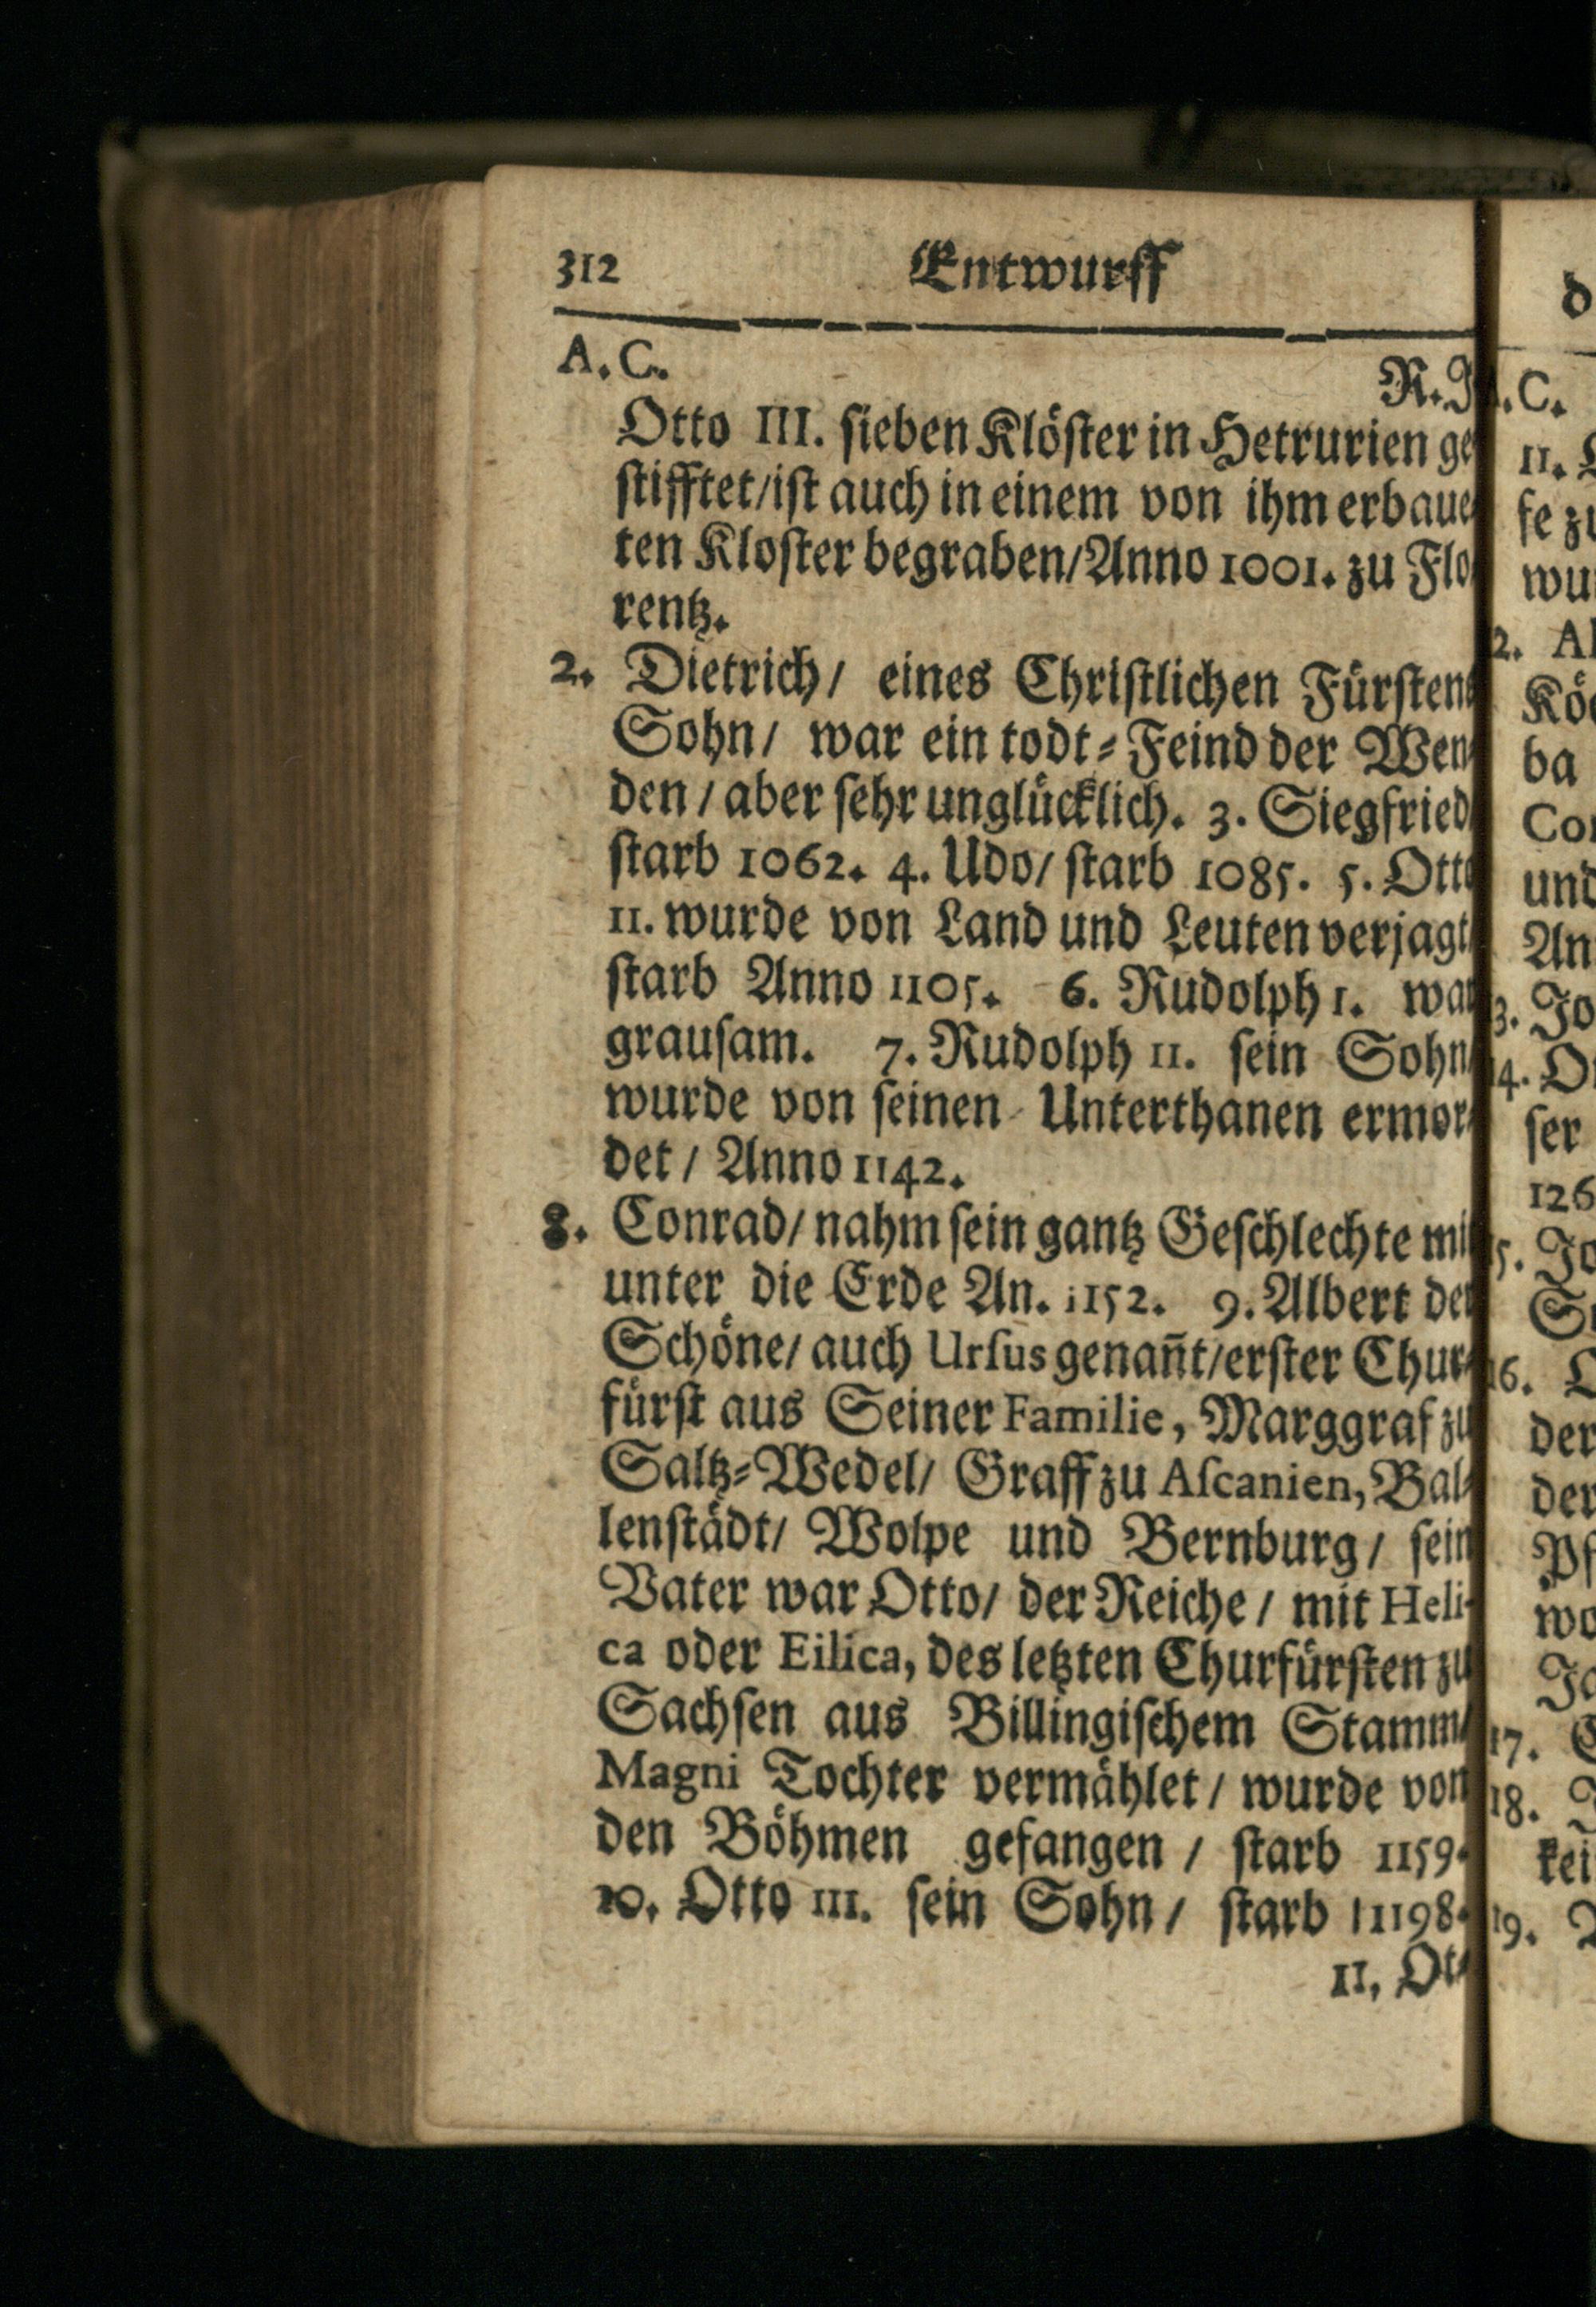 312 Entwurff
A. C. R. J
Otto III. ſieben Klöſter in Hetrurien ge
ſtifftet/iſt auch in einem von ihm erbaue⸗
ten Kloſter begraben/Anno 1001. zu Flo⸗
rentz.
2. Dietrich/ eines Chriſtlichen Fürſtens
Sohn/ war ein todt⸗Feind der Wen⸗
den/ aber ſehr unglücklich. 3. Siegfried/
ſtarb 1062. 4. Udo/ ſtarb 1085. 5. Otto
II. wurde von Land und Leuten verjagt/
ſtarb Anno 1105. 6. Rudolph I. war
grauſam. 7. Rudolph II. ſein Sohn/
wurde von ſeinen Unterthanen ermor⸗
det/ Anno 1142.
8. Conrad/ nahm ſein gantz Geſchlechte mit
unter die Erde An. 1152. 9. Albert der
Schöne/ auch Urſus genan̄t/erſter Chur⸗
fürſt aus Seiner Familie, Marggraf zu
Saltz⸗Wedel/ Graff zu Aſcanien, Bal⸗
lenſtädt/ Wolpe und Bernburg/ ſein
Vater war Otto/ der Reiche/ mit Heli-
ca oder Eilica, des letzten Churfürſten zu
Sachſen aus Billingiſchem Stamm/
Magni Tochter vermählet/ wurde von
den Böhmen gefangen/ ſtarb 1159.
10. Otto III. ſein Sohn/ ſtarb 1198.
11. Ot⸗
C.
11.
ſe
2.
ba
und
An
3. Jo
14.
ſer
126
5. Jo
16.
der
der
17.
18.
kei
19.